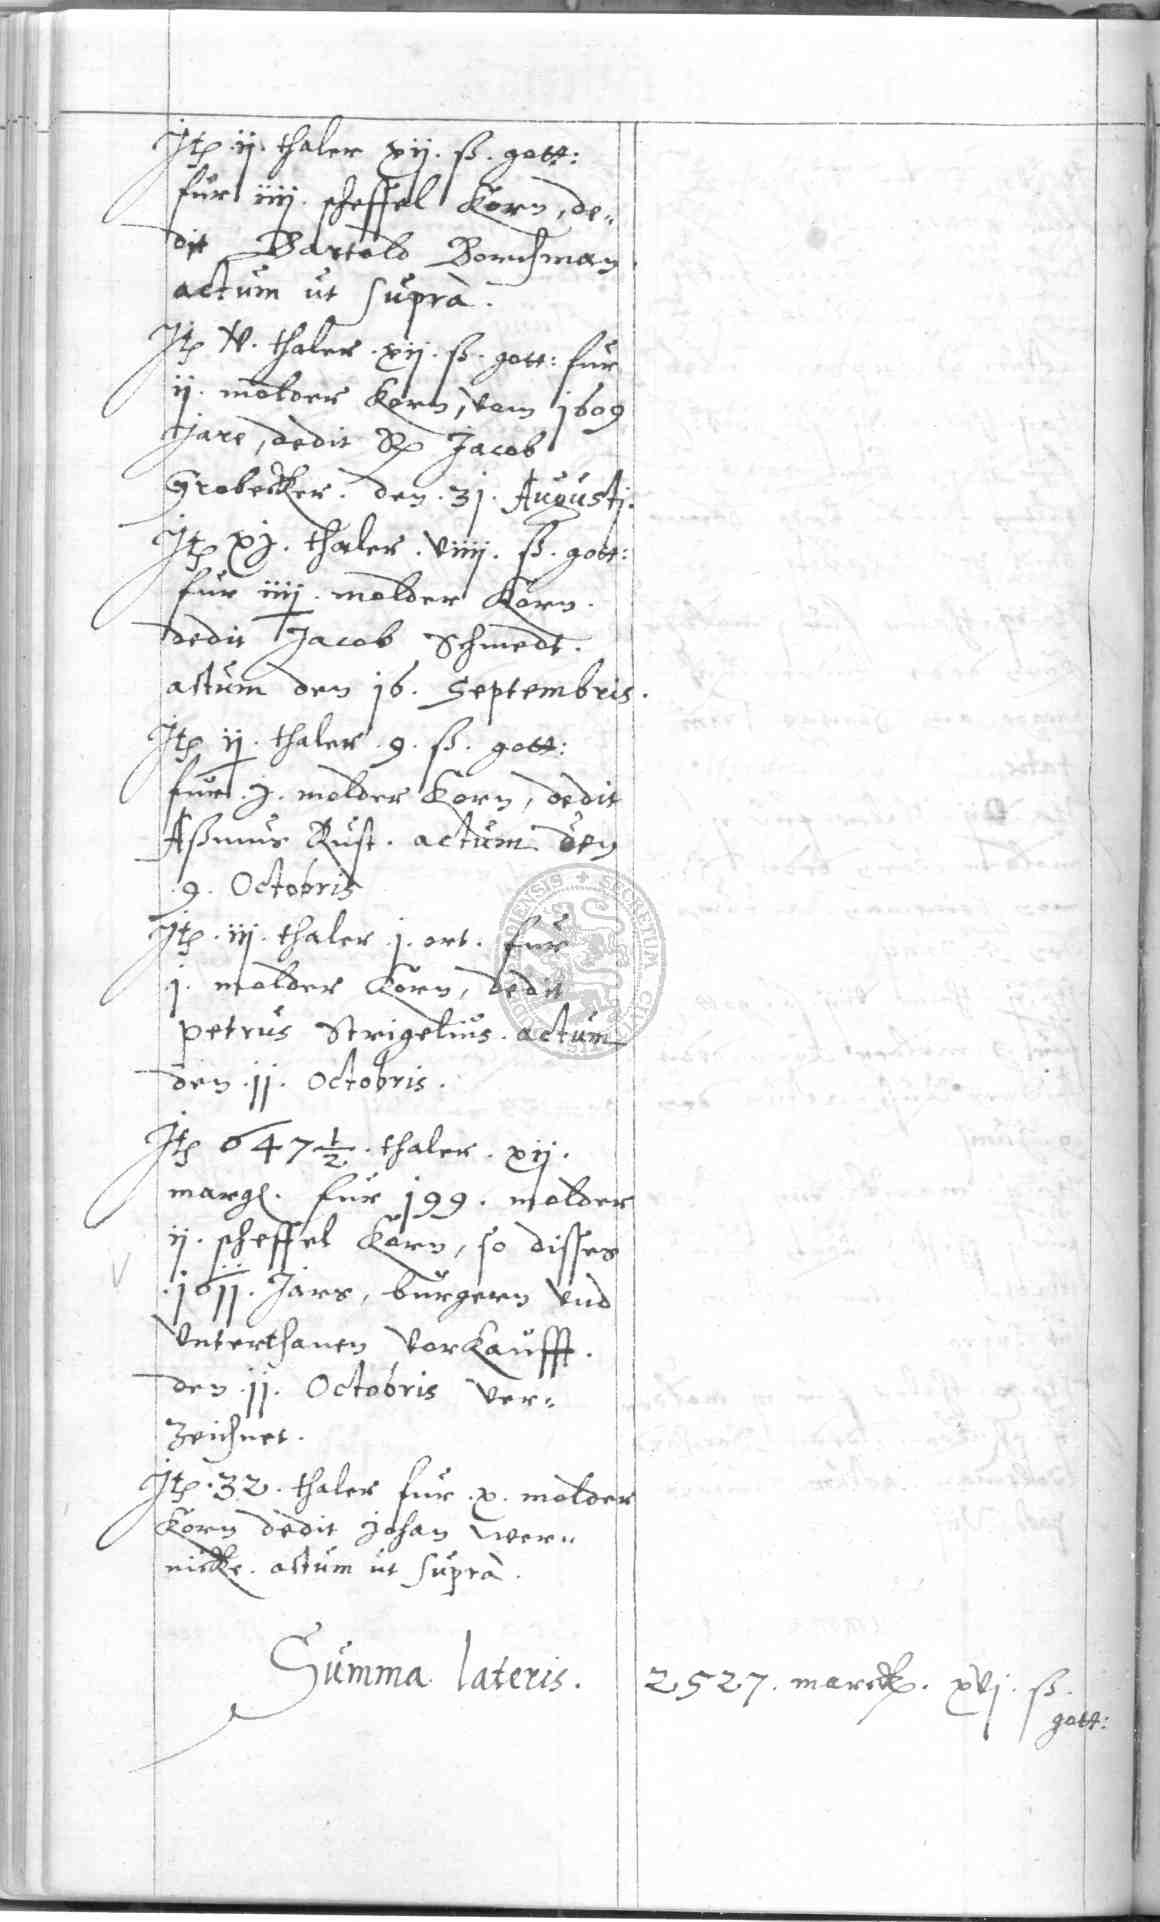 Itp ij thaler xij. ß. gott:
für iiij. scheffel Korn, de„
dit Bartold Borchman
actum ut supra.
Itp V. thaler. xij. ß. gott: für
ij. molder Korn, vom 1609
Jare, dedit Jacob
Grobecker. den. 31. Augustj.
Itp xj. thaler. viiij. ß. gott:
für iiij. molder Korn.
dedit Jacob Schmedt.
actum den 16. Septembris.
Itp ij. thaler. 9. ß. gott:
für. j. molder Korn, dedit
Aßmus Rust. actum den
.9. Octobris
Itp. iij. thaler. j. ort. für
j. molder Korn, dedit
petrus Strigelius. actum
den. 11. Octobris.
Itp 647 1/2. thaler. xij.
margl. für 199. molder
ij. scheffel Korn, so disses
.1611. Jars, bürgern vnd
vnterthanen vorkaufft.
den. 11. Octobris ver„
zeichnet.
Itp. 32. thaler für. x. molder
Korn dedit Johan Wer„
nicke. actum ut supra.
Summa lateris. 2527. marck. xvj. ß.
gott:
SECRETUM